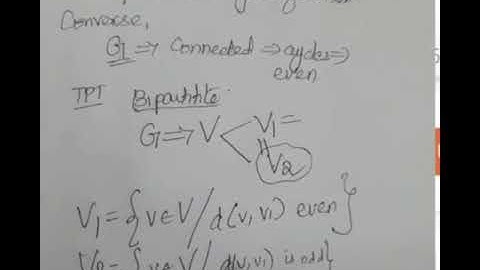 Converse,
G ⇒ Connected ⇒ cycles ⇒
even
TPT Bipartite.
G ⇒ V < V1 =
V2
V1 = {v ∈ V / d(v, v1) even}
V2 = {v ∈ V / d(v, v1) is odd}